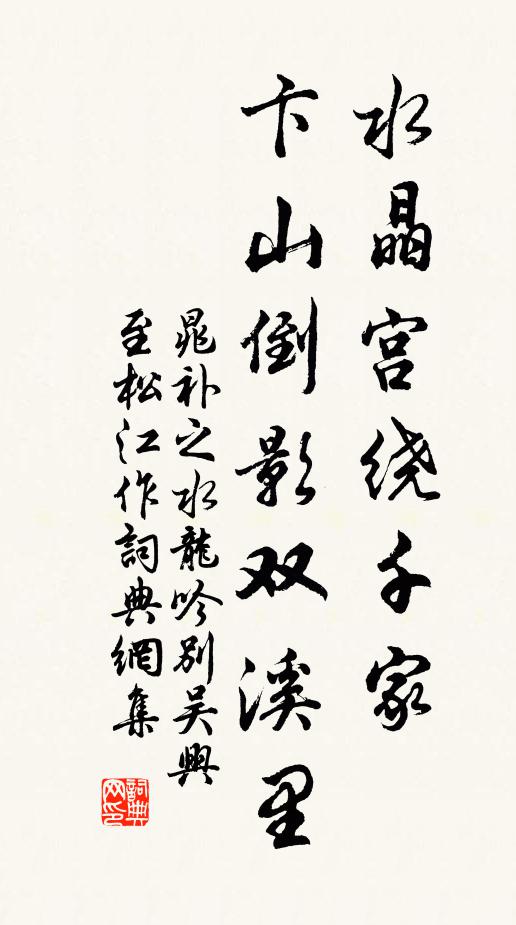 水晶宫绕千家
卞山倒影双溪里
晁补之水龍吟别吴興
至松江作詞典網集
詞典网印